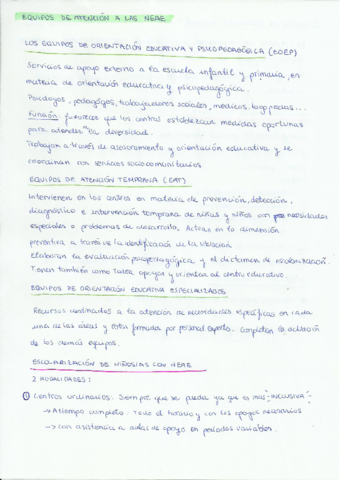 EQUIPOS DE ATENCIÓN A LAS NEAE
LOS EQUIPOS DE ORIENTACIÓN EDUCATIVA Y PSICOPEDAGÓGICA (EOEP)
Servicios de apoyo externo a la escuela infantil y primaria, en
materia de orientación educativa y psicopedagógica.
Psicólogos, pedagogos, trabajadores sociales, médicos, logopedas...
Función: favorecer que los centros establezcan medidas oportunas
para atender la diversidad.
Trabajan a través de asesoramiento y orientación educativa y se
coordinan con servicios sociocomunitarios.
EQUIPOS DE ATENCIÓN TEMPRANA (EAT)
Intervienen en los centros en materia de prevención, detección,
diagnóstico e intervención temprana de niñas y niños con necesidades
especiales o problemas de desarrollo. Actúan en la dimensión
preventiva a través de la identificación de la situación
Elaboran la evaluación psicopedagógica y el dictamen de escolarización.
Tienen también como tarea apoyar y orientar al centro educativo
EQUIPOS DE ORIENTACIÓN EDUCATIVA ESPECIALIZADOS
Recursos destinados a la atención de necesidades específicas en cada
una de las áreas y están formados por personal experto. Completan la actuación
de los demás equipos.
ESCOLARIZACIÓN DE NIÑOS/AS CON NEAE
2 MODALIDADES:
① Centros ordinarios: Siempre que se pueda ya que es más "INCLUSIVA"
→ A tiempo completo: Todo el horario y con los apoyos necesarios
→ con asistencia a aulas de apoyo en periodos variables.